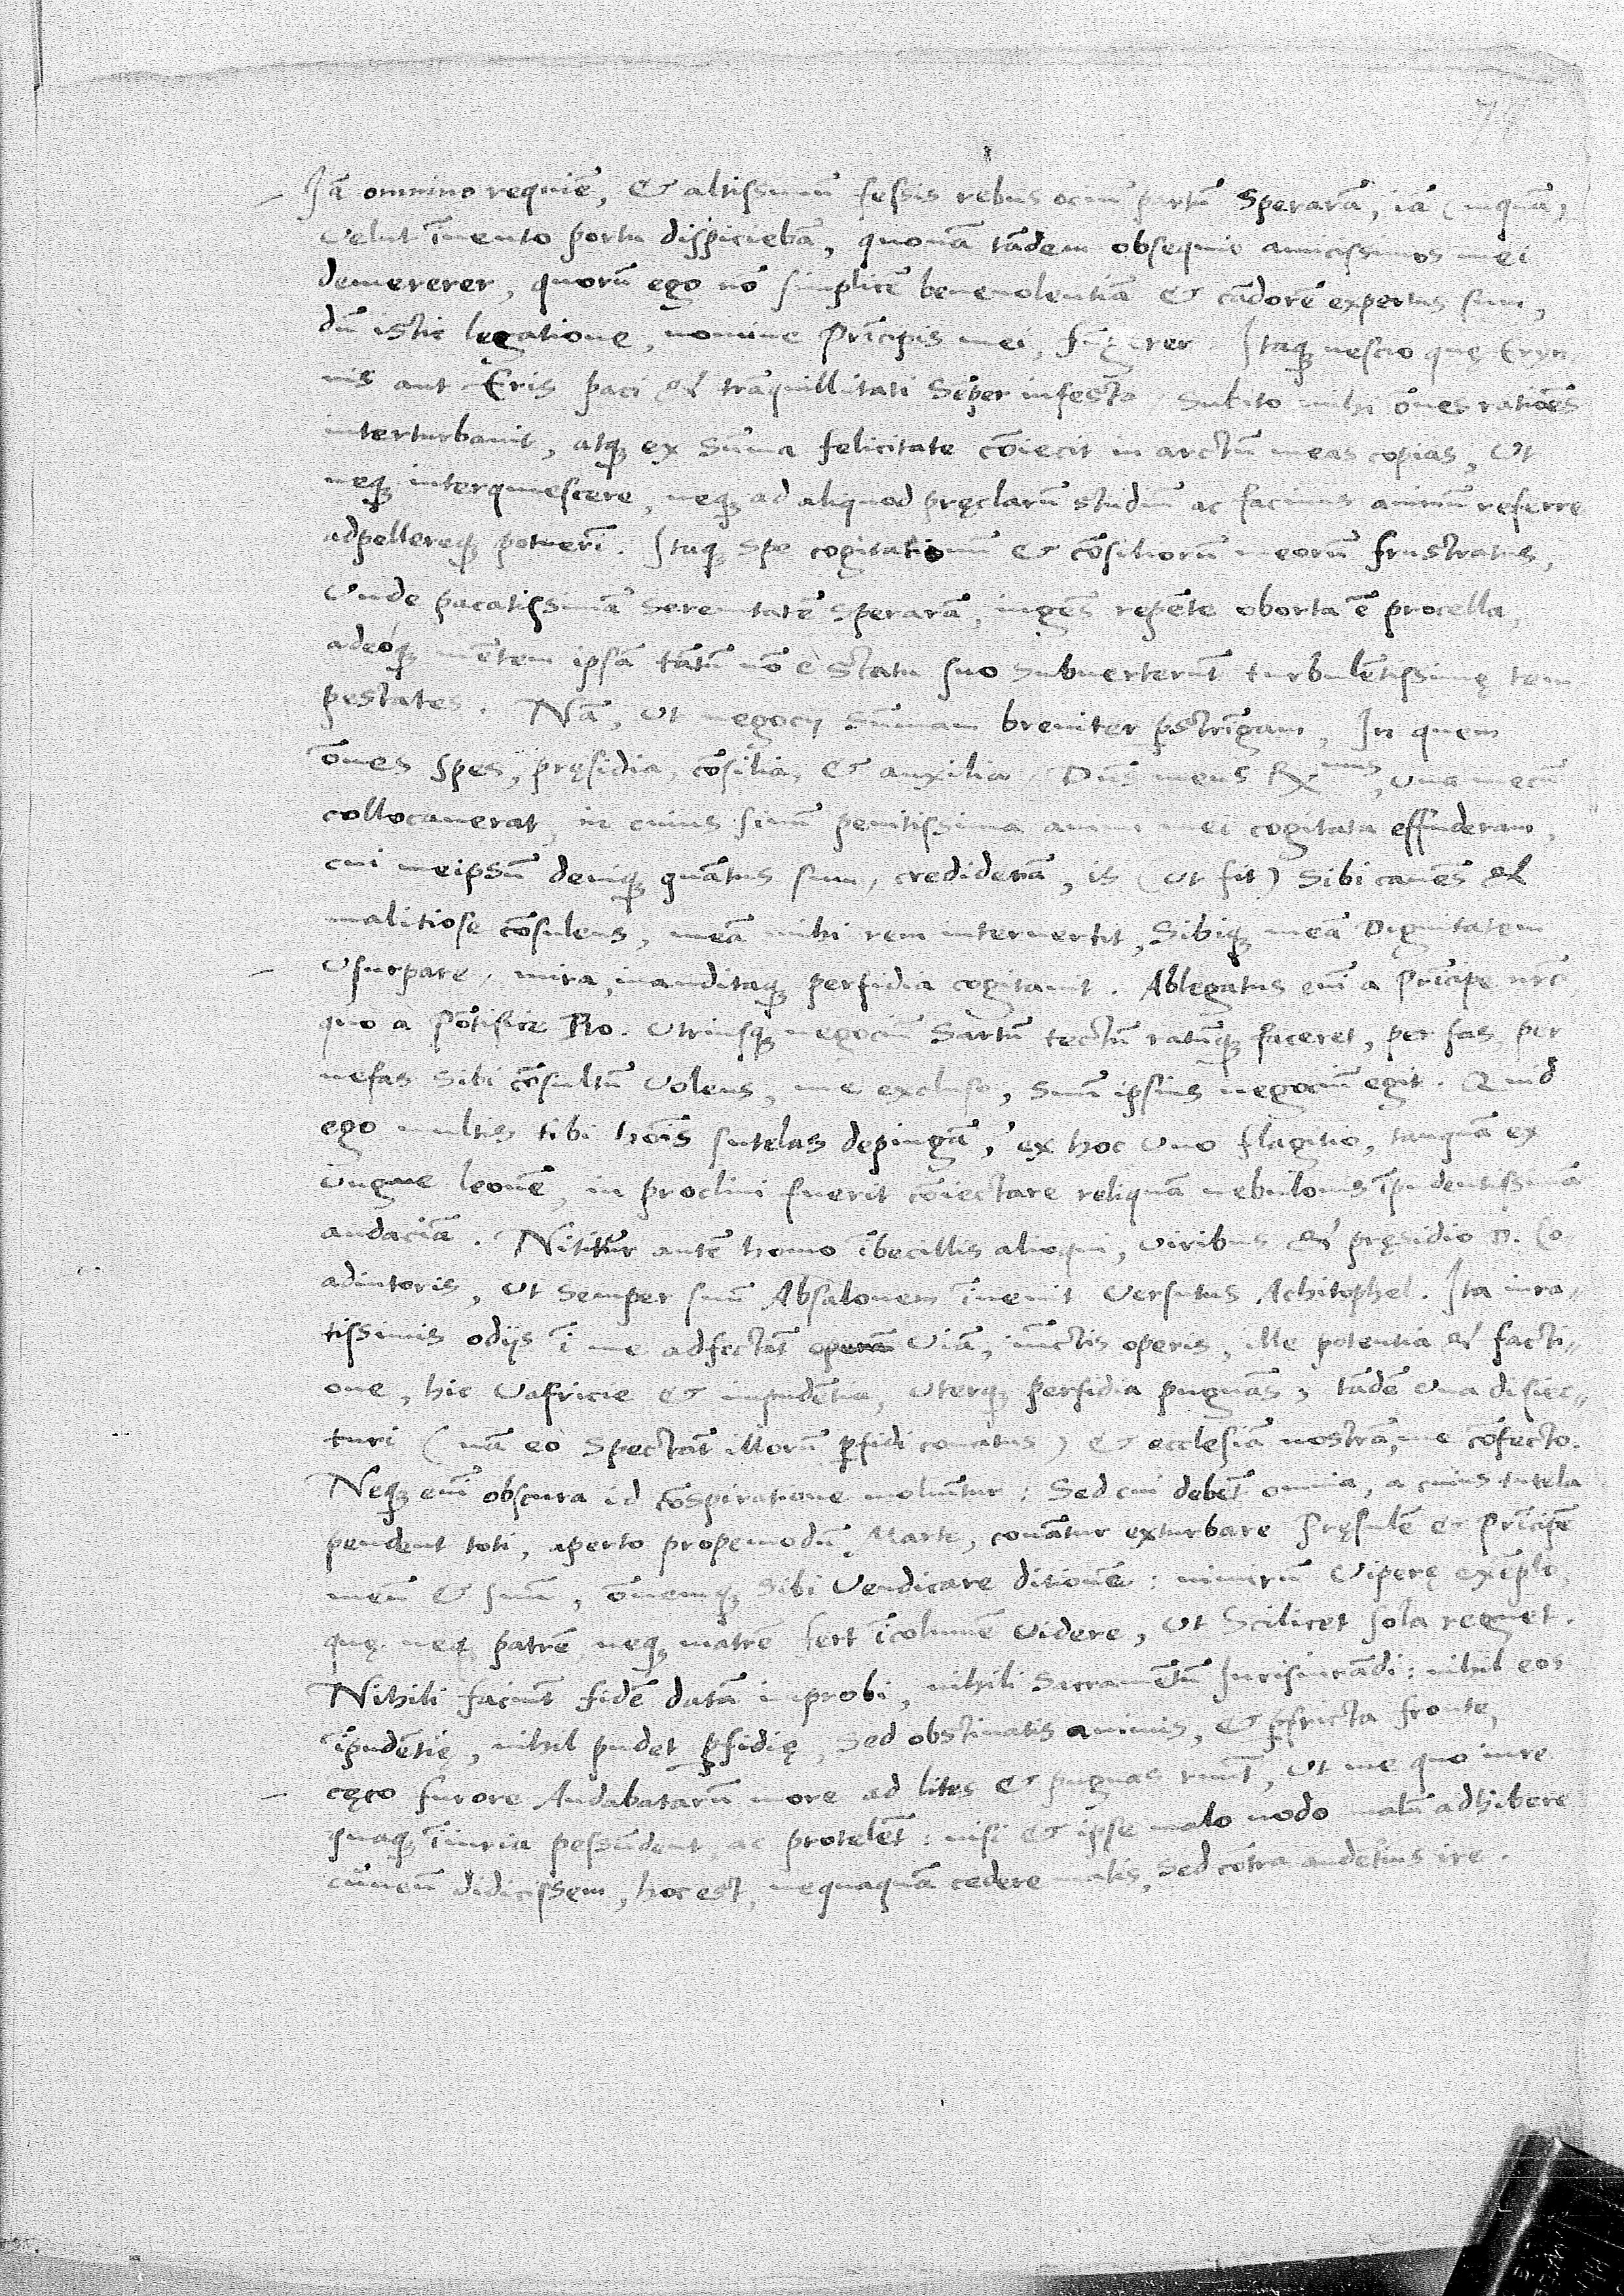 Iā omnino requiē, & altissimū fessis rebus ociū partū sperarā, iā (inquā)
velut īuento portu dispiciebā, quonā tādem obsequio amicissimos mei
demererer, quorū ego nō simplicē beneuolentiā & cādorē expertus sum,
dū istic legatione, nomine Prīcipis mei, fūgerer Itaq nescio quę Eryn
nis aut Eris paci & trāquillitati sēper infesta, subito mihi ōnes ratiōes
interturbauit, atq ex sūma felicitate cōiecit in arctū meas copias, Vt
neq interquiescere, neq ad aliquod pręclarū studiū ac facinus animū referre
adpellereq potuerī. Itaq spe cogitationū & cōsiliorū meorū frustratus,
Vnde pacatissimā serenitatē sperarā, ingēs repēte oborta ē procella,
adeoq mētem ipsā tātū nō è statu suo subuerterūt turbulētissimę tem
pestates. Nā, vt negocij sūmam breuiter pstrīgam, In quem
ōnes spes, pręsidia, cōsilia, & auxilia, Dūs meus R^mus, vna mecū
collocauerat, in cuius sinū penitissima animi mei cogitata effuderam,
cui meipsū deniq quātus sum, credideā, is (vt fit) sibi cauēs &
malitiose cōsulens, meā mihi rem interuertit, sibiq meā Dignitatem
vsurpare, mira, inauditaq perfidia cogitauit. Ablegatus enī a Prīcipe nrō
quo à Pōtifice Ro. vtriusq negociū sartū tectū ratūq faceret, per fas, per
nefas sibi cōsultū volens, me excluso, suū ipsius negociū egit. Quid
ego multis tibi hoīs sutelas depingā, ex hoc vno flagitio, tanquā ex
vngue leonē, in procliui fuerit cōiectare reliquā nebulonis īpudentissimā
audaciā. Nititur autē homo ībecillis alioqui, viribus & pręsidio D. Co
adiutoris, vt semper suū Absalonem īuenit versutus Achitophel. Ita inra,,
tissimis odijs ī me adfectāt viā, iūctis operis, ille potentia & facti,,
one, hic vafricie & impudētia, vterq perfidia pugnās, tādē vna disiec,,
turi (nā eò spectāt illorū pfidi conatus) & ecclesiā nostrā, me cōfecto.
Neq enī obscura id cōspiratione moliūtur: Sed cui debēt omnia, a cuius tutela
pendent toti, aperto propemodū Marte, conātur exturbare Pręsulē & Prīcipē
meū & suū, ōnemq sibi vendicare ditionē: nimirū viperę exēplo,
quę neq patrē neq matrē fert īcolumē videre, vt scilicet sola regnet.
Nihili faciūt fidē datā improbi, nihili sacramētū Iurisiurādi: nihil eos
īpudētię, nihil pudet pfidię, sed obstinatis animis, & pfricta fronte,
cęco furore Andabatarū more ad lites & pugnas ruūt, vt me quo iure
quaq īiuria pessūdent, ac protelēt: nisi & ipse malo nodo malū adhibere
cuneū didicissem, hoc est, nequaquā cedere malis, sed cōtra audētius ire.